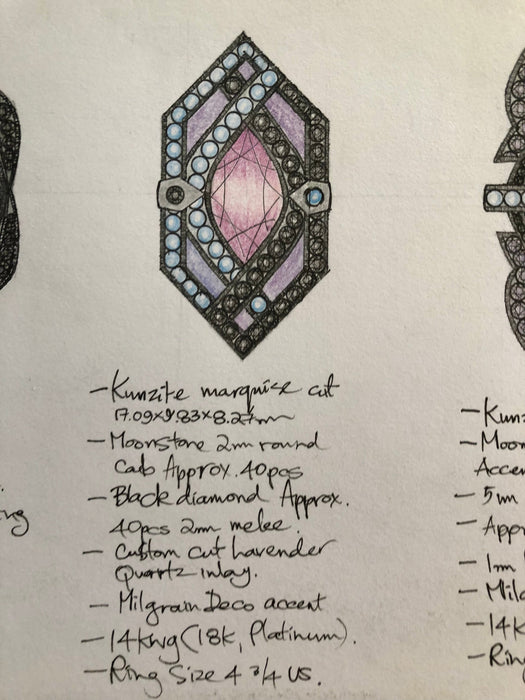 - Kunzite marquise cut
17.09x9.83x8.27mm
- Moonstone 2mm round
Cab Approx. 40pcs
- Black diamond Approx.
40pcs 2mm melee.
- Custom cut Lavender
Quartz inlay.
- Milgrain Deco accent
- 14kwg (18k, Platinum).
- Ring Size 4 3/4 US.
- Kunz
- Moon
Accen
- 5m
- Appr
- 1m
- Mila
- 14k
- Rin
ng